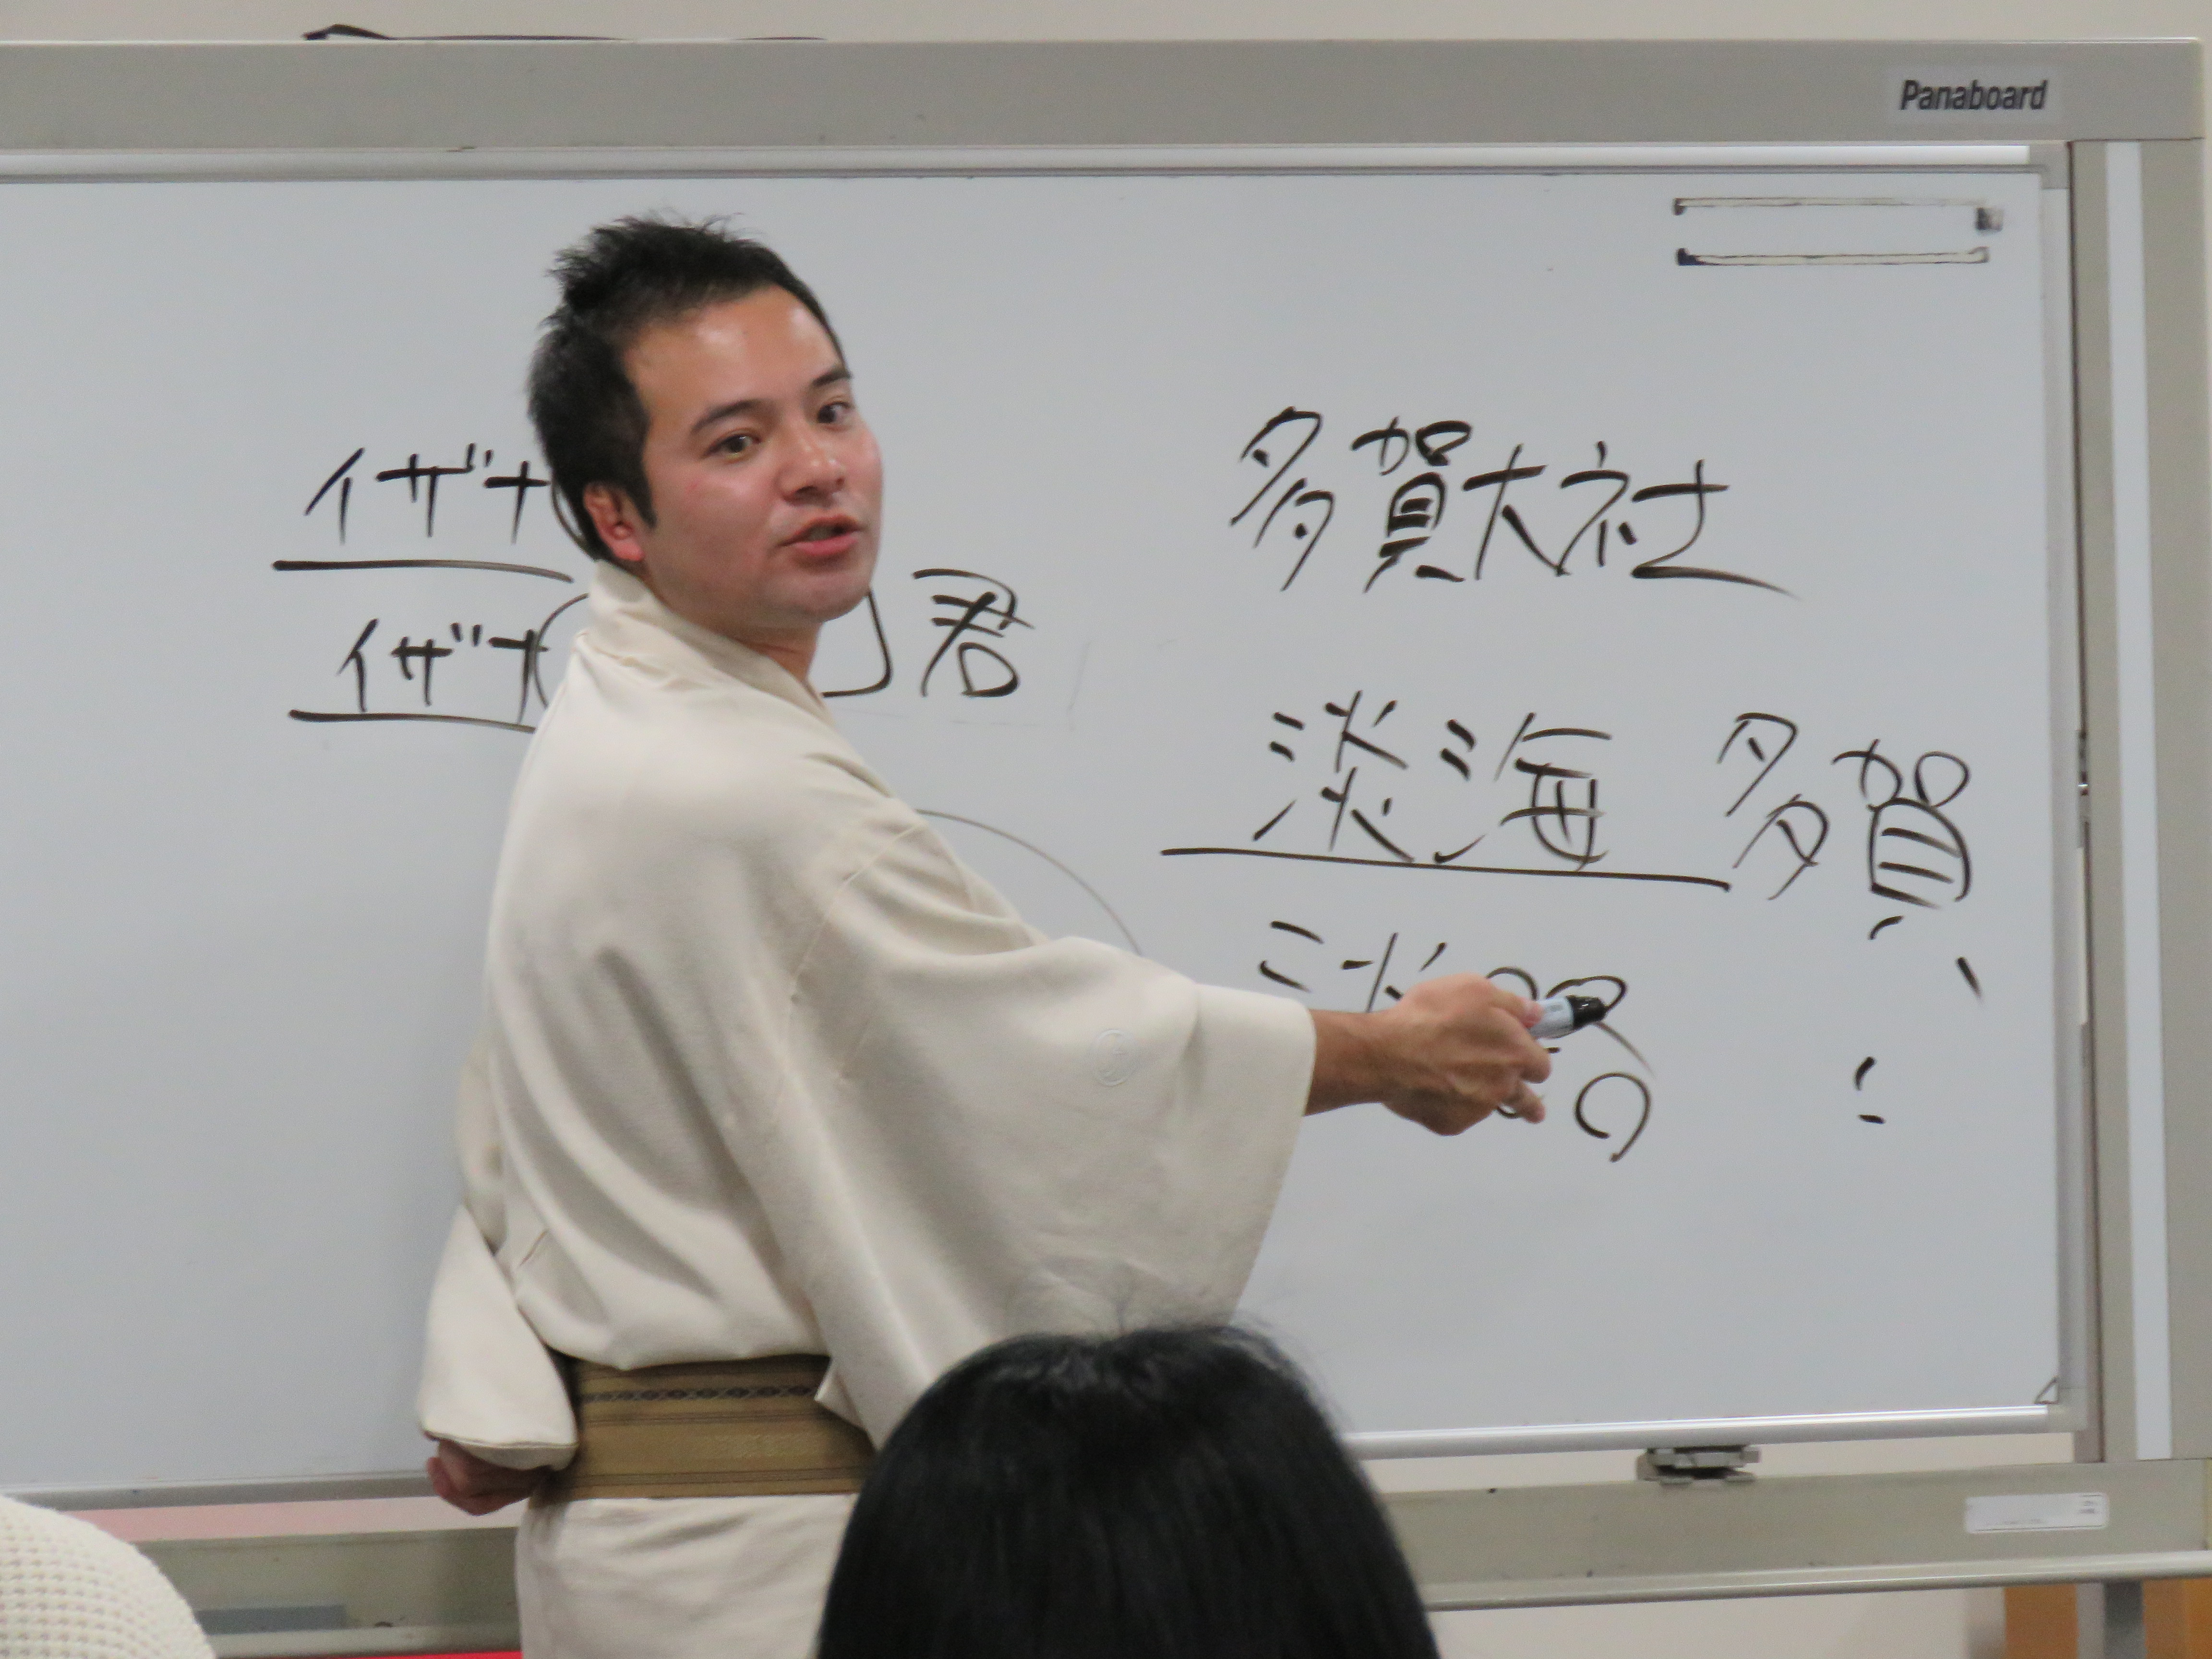 Panaboard
イザナ
イザナ 君
多賀大社
淡海 多賀
淡